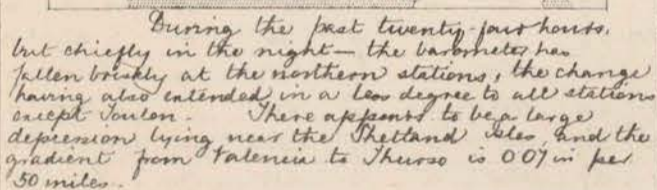 During the past twenty-four hours,
but chiefly in the night — the barometer has
fallen briskly at the northern stations, the change
having also extended in a less degree to all stations
except Toulon. There appears to be a large
depression lying near the Shetland Isles and the
gradient from Valencia to Thurso is 0.07 in per
50 miles.